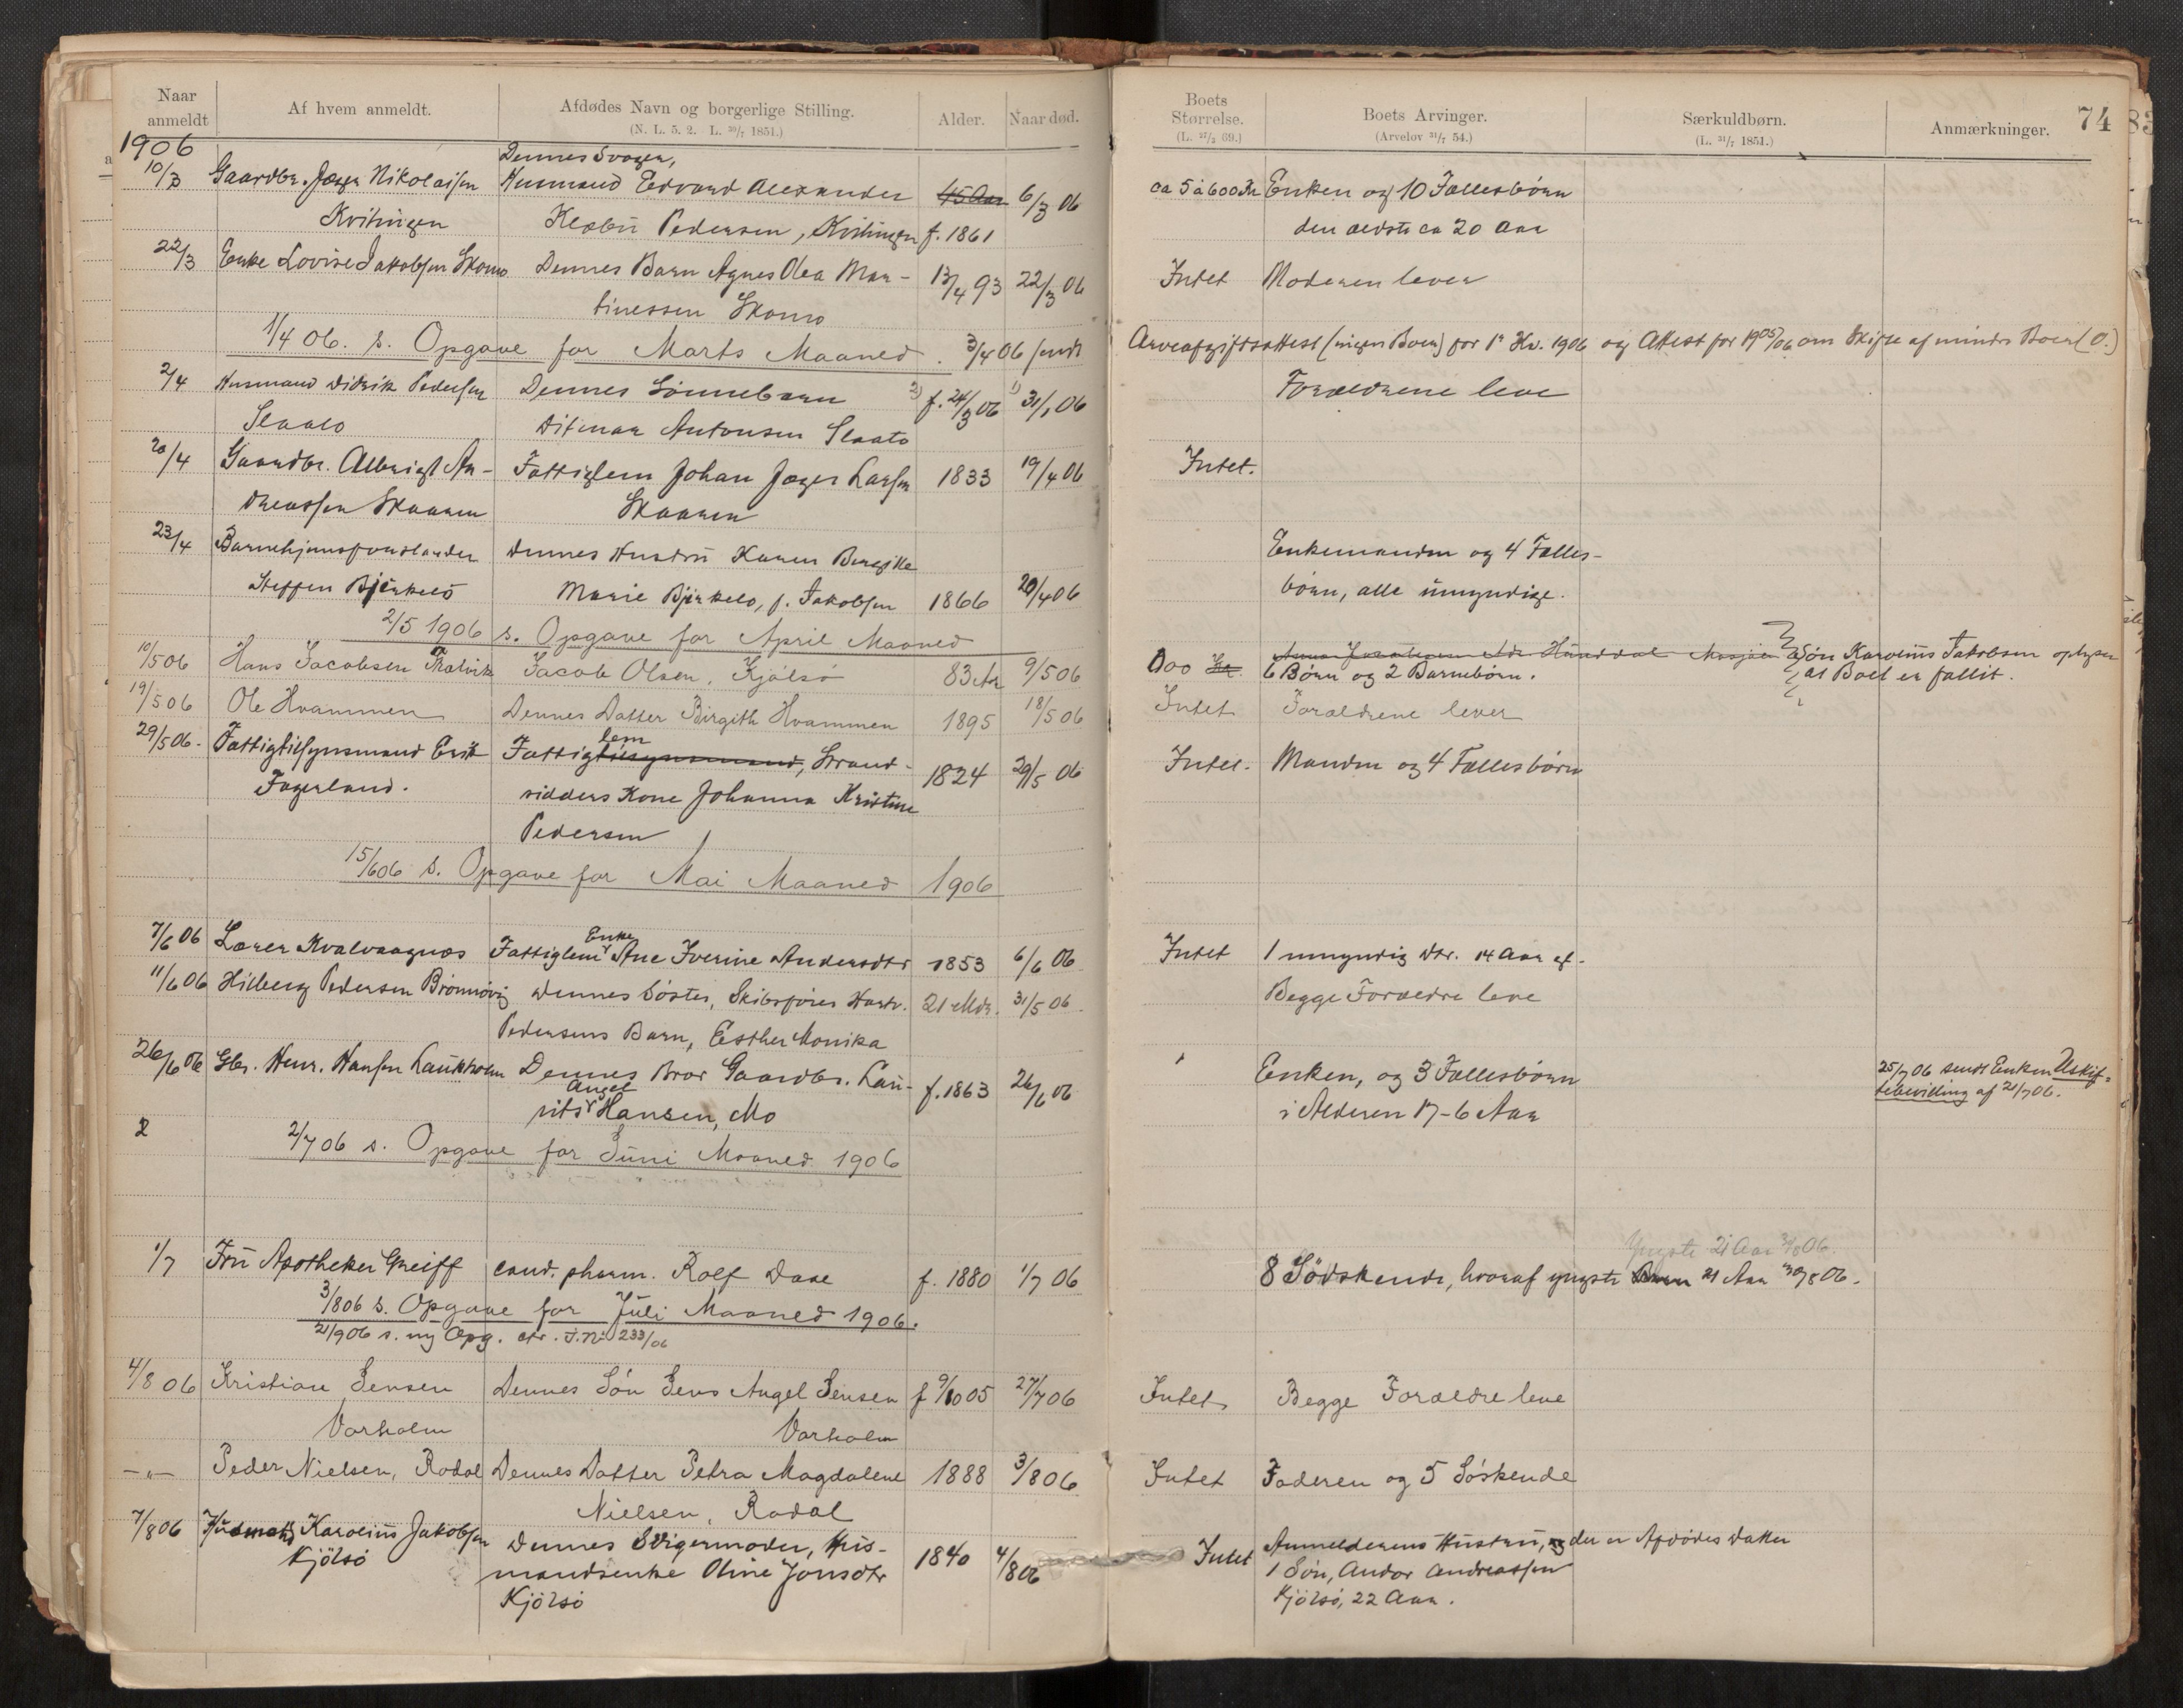 Naar anmeldt
Af hvem anmeldt.
Afdødes Navn og borgerlige Stilling.
(N. L. 5. 2. L. 30/7 1851.)
Alder.
Naar død.
Boets Størrelse.
(L. 27/3 69.)
Boets Arvinger.
(Arvelov 31/7 54.)
Særkuldbørn.
(L. 31/7 1851.)
Anmærkninger.
74
83
1906
Dennes Svoger,
10/3 Gaardbr. Jæger Nikolaisen Husmand Edvard Alexander 45 Aar 6/3 06 ca 5 à 600 Kr Enken og 10 Fællesbørn
Kvitingen Klæbu Pedersen, Kvitingen f. 1861 den ældste ca 20 Aar
22/3 Enke Lovise Jakobsen Skomo Dennes Barn Agnes Olea Mar- 13/4 93 22/3 06 Intet Moderen lever
tinessen Skomo
1/4 06. s. Opgave for Marts Maaned. 3/4 06 sendt Arveafgiftsattest (ingen Boer) for 1ste Kv. 1906 og Attest for 1905/06 om Skifte af mindre Boer (0.)
2/4 Husmand Didrik Pedersen Dennes Sønnebarn 2) f. 24/3 06 1) 31/3 06 Forældrene leve
Slaato Ditmar Antonsen Slaato
20/4 Gaardbr. Albrigt An- Fattiglem Johan Jæger Larsen 1833 19/4 06 Intet.
dreassen Skaaren Skaaren
23/4 Barnehjemsforstander Dennes Hustru Karen Bergitte Enkemanden og 4 Fælles-
Steffen Bjerkelo Marie Bjerkelo, f. Jakobsen 1866 20/4 06 børn, alle umyndige.
2/5 1906 s. Opgave for April Maaned
10/5 06 Hans Jacobsen Tralvik Jacob Olsen, Kjølsø 83 Aar 9/5 06 6 Børn og 2 Barnebørn. Søn Karolius Jakobsen oplyser
at Boet er fallit.
19/5 06 Ole Hvammen Dennes Datter Birgith Hvammen 1895 18/5 06 Intet Forældrene lever
lem
29/5 06. Fattigtilsynsmand Erik Fattigtilsynsmand, Strand- 1824 29/5 06 Intet. Manden og 4 Fællesbørn
Fagerland. sidders Kone Johanna Kristine
Pedersen
15/6 06 s. Opgave for Mai Maaned 1906
Enke
7/6 06 Lærer Kvalvaagnæs Fattiglem Ane Iverine Andersdtr 1853 6/6 06 Intet 1 umyndig Dtr. 14 Aar gl.
11/6 06 Hilberg Pedersen Brønnøvig Dennes Søster, Skibsfører Hartv. 21 Mdr. 31/5 06. Begge Forældre leve
Pedersens Barn, Esther Monika
26/6 06 Gbr. Henr. Hansen Laukholm Dennes Bror Gaardbr. Lau- f. 1863 26/6 06 Enken, og 3 Fællesbørn 25/7 06 sendt Enken Uskif-
Angel
rits Hansen, Mo i Alderen 17-6 Aar tebevilling af 21/7 06.
2
2/7 06 s. Opgave for Juni Maaned 1906
Yngste 21 Aar 30/8 06.
1/7 Fru Apotheker Greiff cand. pharm. Rolf Daae f. 1880 1/7 06 8 Sødskende, hvoraf yngste Barn 21 Aar 30/8 06.
3/8 06 s. Opgave for Juli Maaned 1906.
21/9 06 s. ny Opg. cfr. J.No 233/06
4/8 06 Kristian Jensen Dennes Søn Jens Angel Jensen f 9/10 05 27/7 06 Intet Begge Forældre leve
Varholm Varholm
-"- Peder Nielsen, Rodal Dennes Datter Petra Magdalene 1888 3/8 06 Intet Faderen og 5 Søskende
Nielsen, Rodal
7/8 06 Husmand Karolius Jakobsen Dennes Svigermoder, Hus- 1840 4/8 06 Intet Anmelderens Hustru, der er Afdødes Datter
Kjølsø mandsenke Oline Jonsdtr 1 Søn, Andor Andreassen
Kjølsø Kjølsø, 22 Aar.